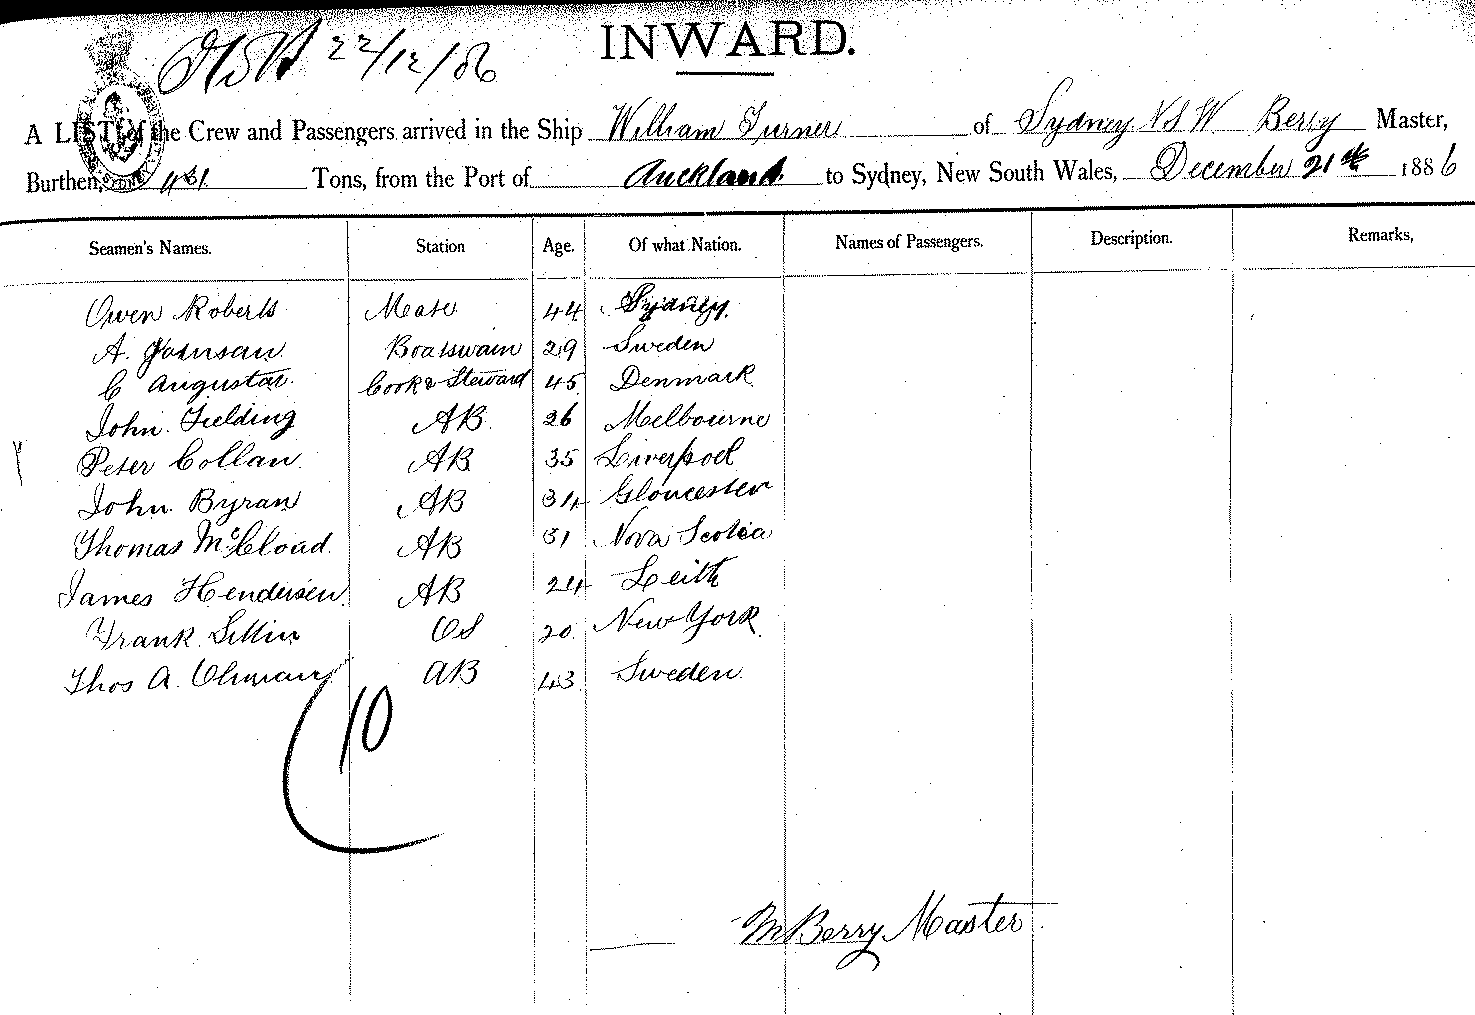 22/12/86
INWARD.
A LIST of the Crew and Passengers arrived in the Ship William Turner of Sydney NSW Berry Master,
Burthen, 431 Tons, from the Port of Auckland to Sydney, New South Wales, December 21st 1886
Seamen's Names. Station Age. Of what Nation. Names of Passengers. Description. Remarks,
Owen Roberts Mate 44 Sydney.
A. Johnson Boatswain 29 Sweden
C Augustar. Cook & Steward 45 Denmark
John Fielding AB 26 Melbourne
Peter Collan AB 35 Liverpool
John Byran AB 34 Gloucester
Thomas McCloud AB 31 Nova Scotia
James Hendersen AB 24 Leith
Frank OS 20 New York
Thos A. AB 43 Sweden
10
M Berry Master